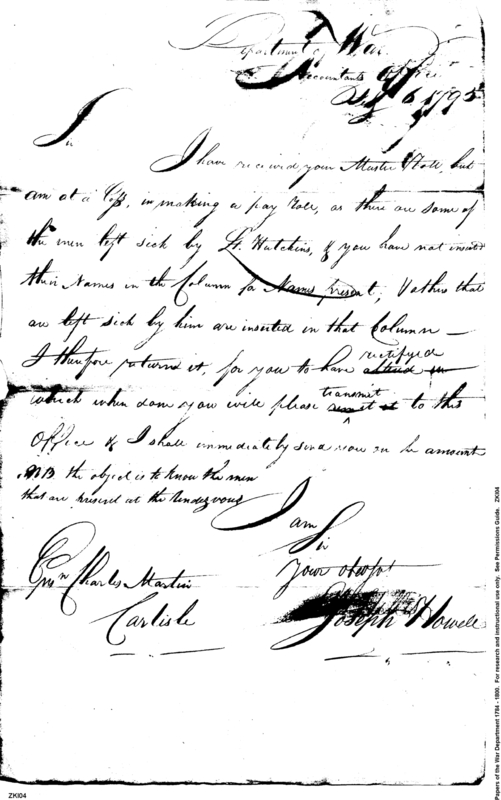 Department of War
Accountants Office
July 6 1795
Sir
I have received your Muster Roll, but
am at a loss, in making a pay Role, as there are some of
the men left sick by Lt. Hutchins, & you have not insert'd
their Names in the Column for Names present, & others that
are left sick by him are inserted in that Column —
I therefore returned it, for you to have rectifyed
which when done you will please transmit to this
Office & I shall immediately send you on he amount
NB the object is to know the men
that are present at the rendezvous
I am
Sir
Your
Joseph Howell
Charles Martin
Carlisle
ZKI04
Papers of the War Department 1784 - 1800. For research and instructional use only. See Permissions Guide. ZKI04